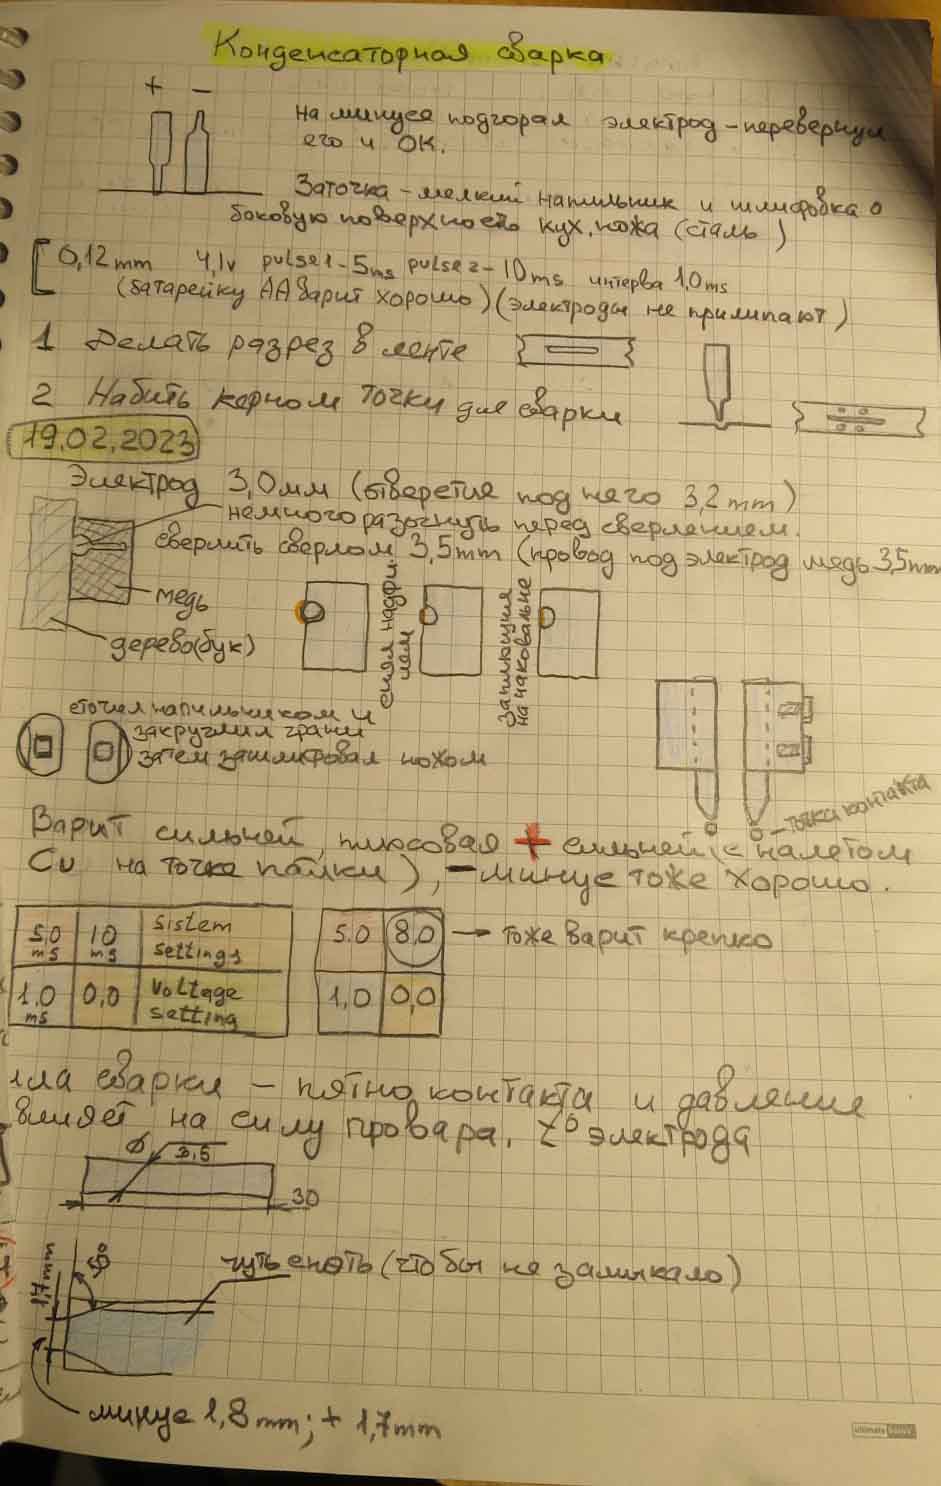 Конденсаторная сварка
+ −
на минусе подгорал электрод – перевернул
его и ОК.
Заточка – мелкий напильник и шлифовка о
боковую поверхность кух. ножа (сталь)
0,12mm 4,1v pulse1-5ms pulse2-10ms интерва 1,0ms
(батарейку АА варит хорошо) (электроды не прилипают)
1 Делать разрез в ленте
2 Набить керном точки для сварки
19.02.2023
Электрод 3,0мм (отверстия под него 3,2mm)
немного разогнуть перед сверлением.
сверлить сверлом 3,5mm (провод под электрод медь 3,5mm
медь
дерево(бук)
снял надфи-
лем
Заплющил
на наковальне
сточил напильником и
закруглил грани
затем зашлифовал ножом
точка контакта
Варит сильней, плюсовая + сильней (с налетом
Cu на точке пайки), – минус тоже хорошо.
5.0 ms 10 ms sistem settings
1.0 ms 0,0 voltage setting
5.0 8,0 → тоже варит крепко
1,0 0,0
сварки – пятно контакта и давление
влияет на силу провара, электрода
Ø 3,5
30
1,7mm
чуть снять (чтобы не замыкало)
минус 1,8mm; + 1,7mm
ultimate basics